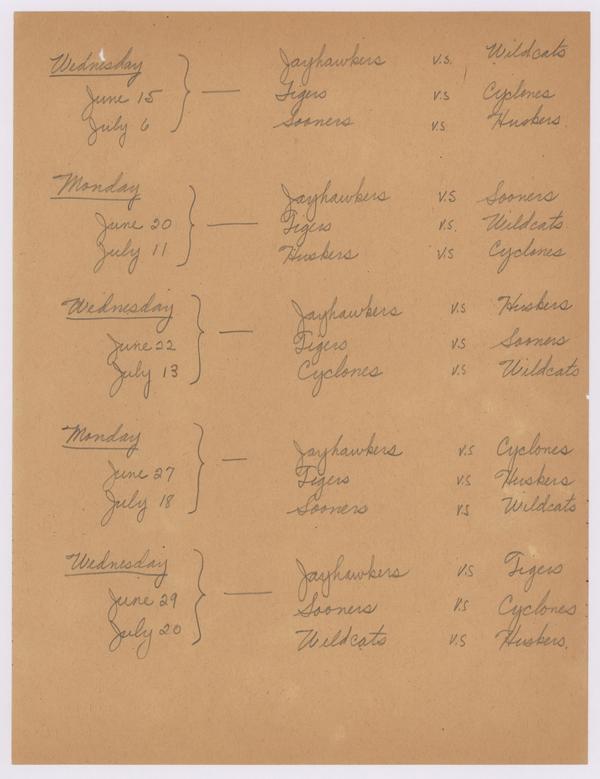 Wednesday Jayhawkers v.s. Wildcats
June 15 — Tigers v.s Cyclones
July 6 Sooners v.s Huskers.
Monday Jayhawkers v.s Sooners
June 20 — Tigers v.s. Wildcats.
July 11 Huskers v.s Cyclones
Wednesday Jayhawkers v.s Huskers
June 22 — Tigers v.s Sooners
July 13 Cyclones v.s Wildcats
Monday Jayhawkers v.s Cyclones
June 27 — Tigers v.s Huskers
July 18 Sooners v.s Wildcats
Wednesday Jayhawkers v.s Tigers
June 29 — Sooners v.s Cyclones
July 20 Wildcats v.s Huskers.